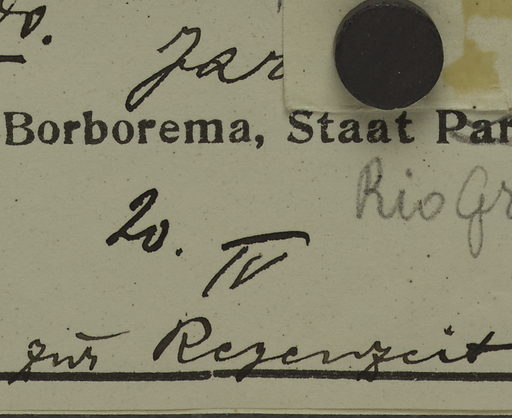 Jar
Borborema, Staat Par
Rio Gr
20. IV
zur Regenzeit